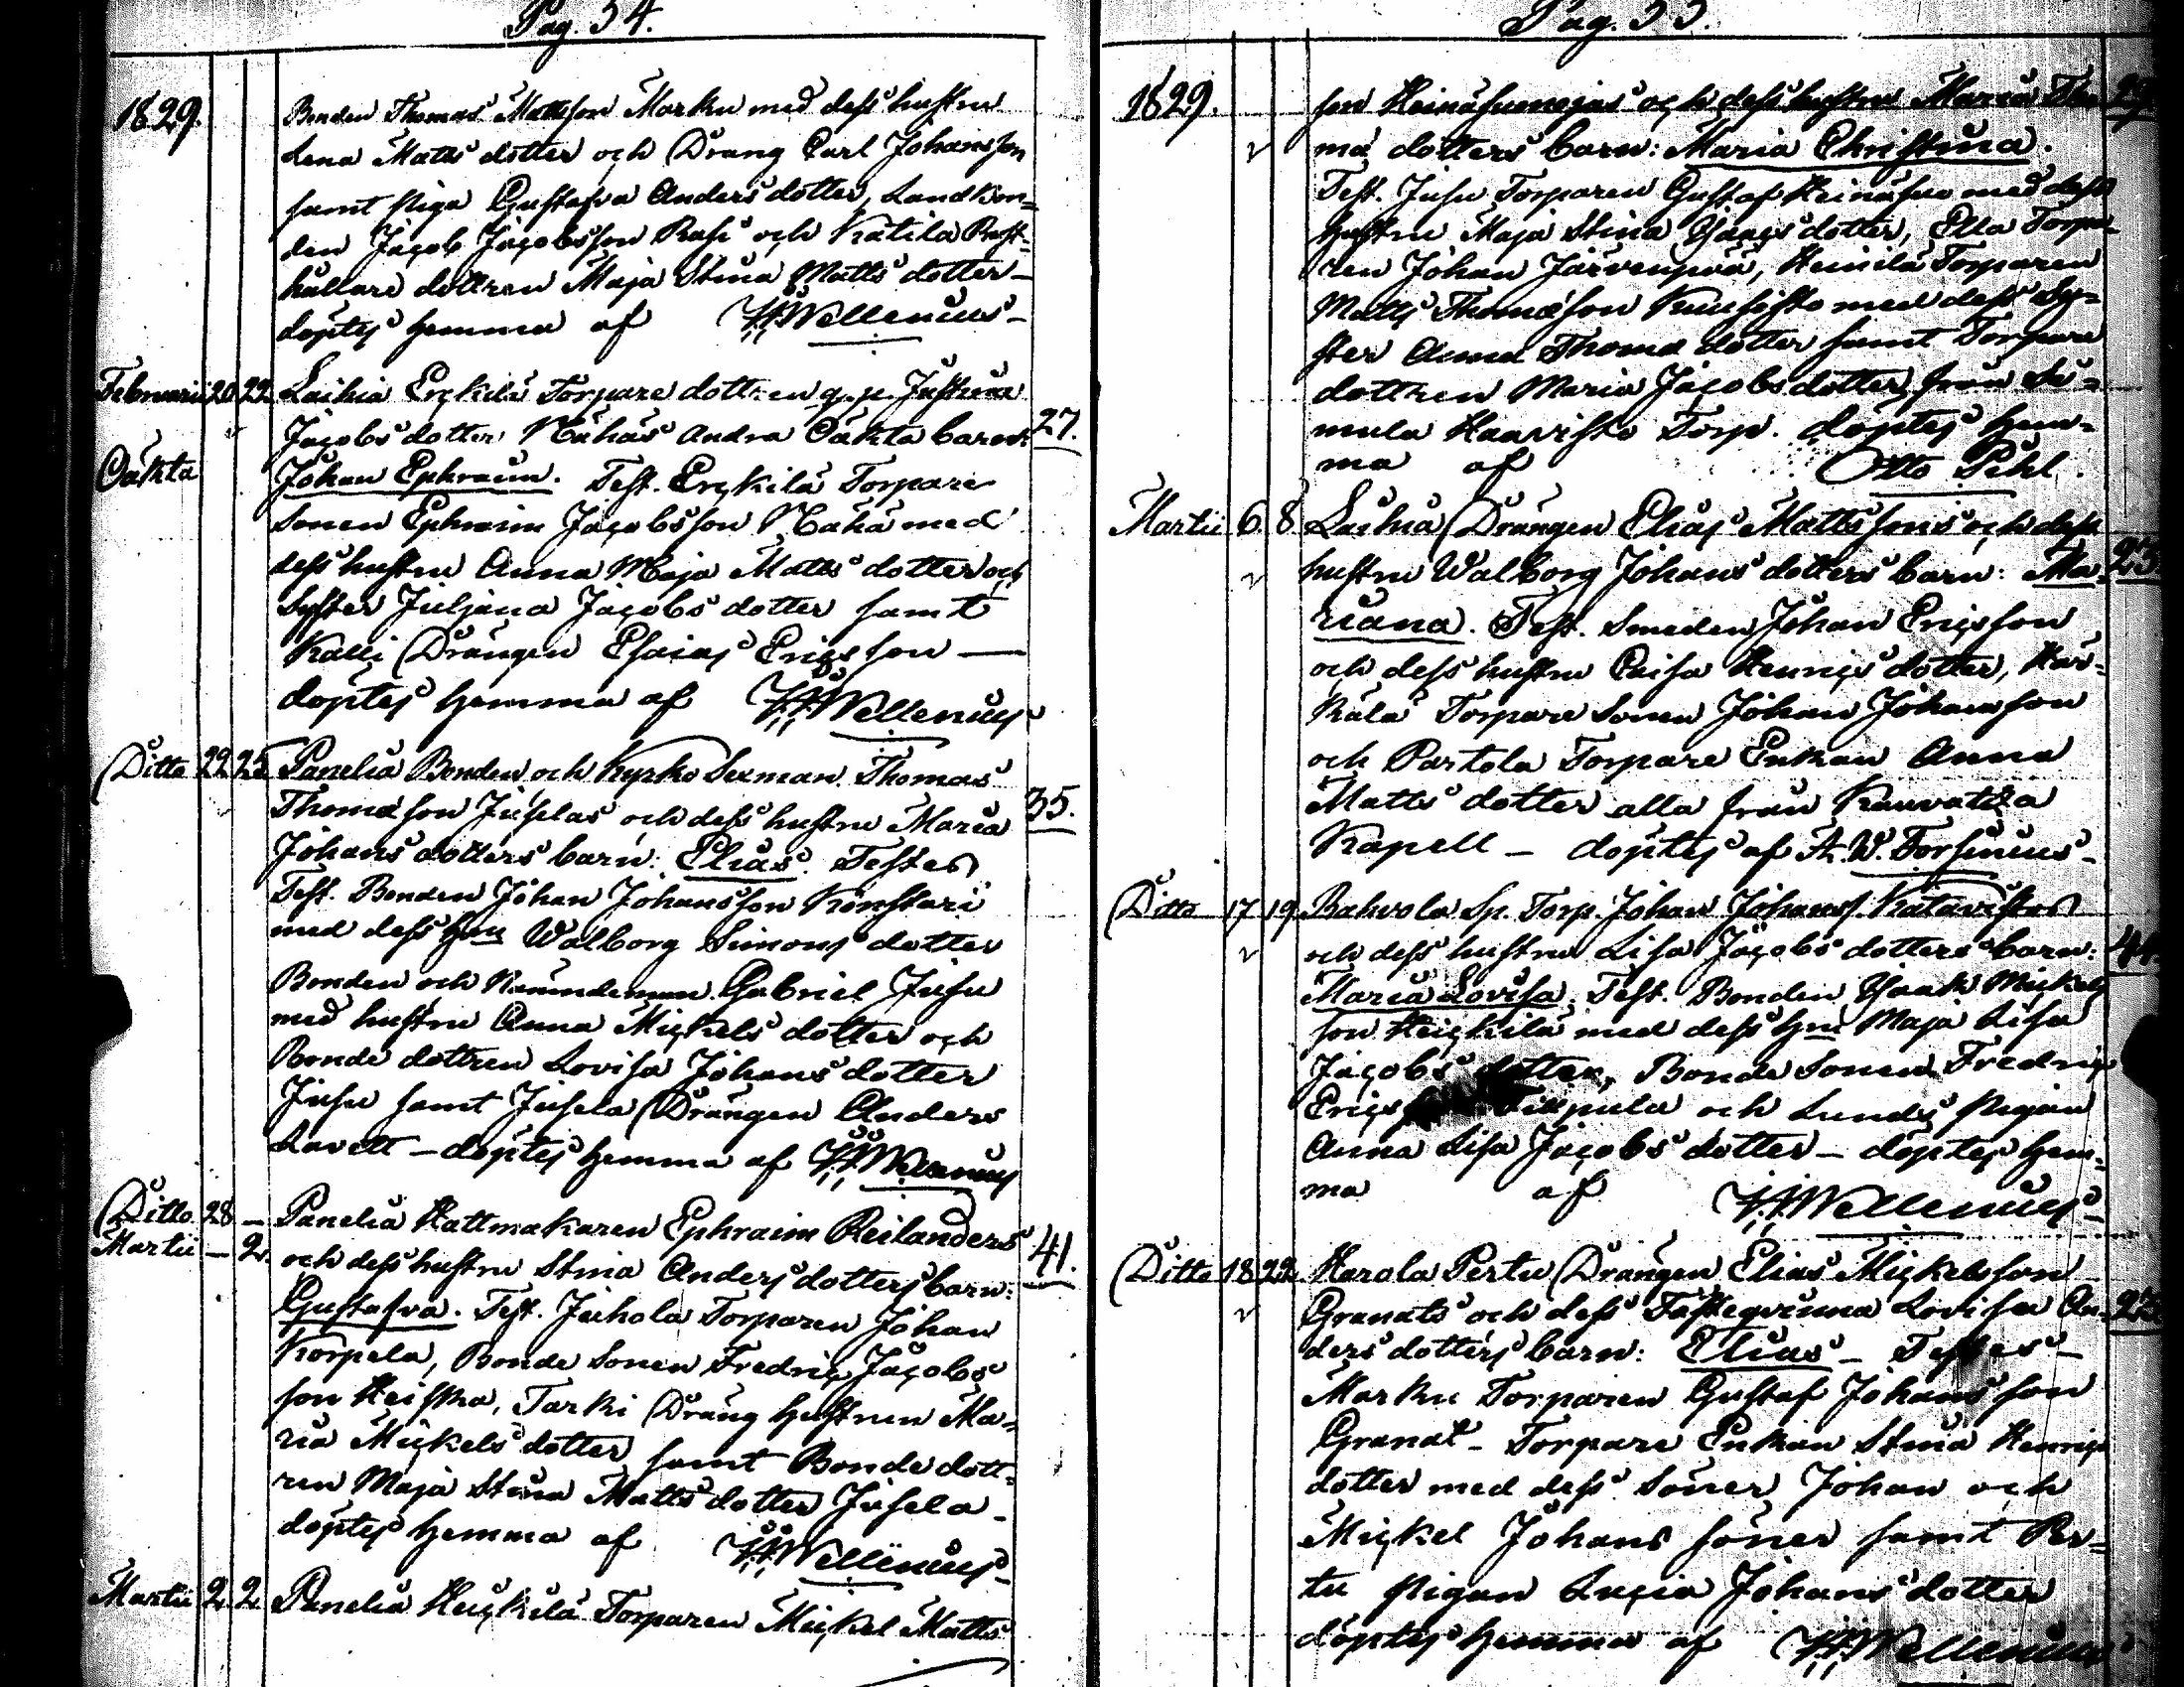 Pag. 54.
1829.
Bonden Thomas Mattsson Marku med dess hustru
Lena Matts dotter och Dräng Carl Johansson
samt piga Gustafva Anders dotter, Landbon=
den Jacob Jacobsson Rasi och Katila Rust=
hållare dottren Maja Stina Matts dotter –
döptes hemma af Wellenius –
Februarii 20 22 Laihia Erckilä Torpare dottren q.p. Justina
Jacobs dotter Mähäs andra Oäkta barn: 27.
Oäkta
Johan Ephraim. Test. Erckilä Torpare
Sonen Ephraim Jacobsson Mähä med
dess hustru Anna Maja Matts dotter och
Syster Juljana Jacobs dotter samt
Drängen Esaias Ericsson —
döptes hemma af Wellenius
Ditto 22 25 Panelia Bonden och Kyrko Sexman Thomas
Thomasson Juselas och dess hustru Maria 35.
Johans dotters barn: Elias. Testes
Test. Bonden Johan Johansson Konstari
med dess hu Walborg Simons dotter
Bonden och Nämndeman Gabriel Jusu
med hustru Anna Mickels dotter och
Bonde dottren Lovisa Johans dotter
Jusu samt Jusela Drängen Anders
Lavett – döptes hemma af Wellenius
Ditto 28 – Panelia Hattmakaren Ephraim Reilanders
Martii – 2. och dess hustru Stina Anders dotters barn: 41.
Gustafva. Test. Juhola Torparen Johan
Korpela, Bonde Sonen Fredric Jacobs
son Heiska, Tarki Dräng hustrun Ma=
ria Mickels dotter samt Bonde dott=
ren Maja Stina Matts dotter Jusela –
döptes hemma af Wellenius –
Martii 2 2 Panelia Heickilä Torparen Mickel Matts
Pag. 55.
1829.
son Heinäsuonojas och dess hustru Maria Tho
ma dotters barn: Maria Christina.
Test. Jusu Torparen Gustaf Heinäsuo med dess
hustru Maja Stina Isaacs dotter, Ella Torpa=
ren Johan Järvenpää, Heinilä Torparen
Matts Thomasson Kuusisto med dess Sy=
ster Anna Thoma dotter samt Torpare
dottren Maria Jacobs dotter från Su=
mula Haavisto Torp. döptes hem=
ma af Otto Pihl.
Martii 6. 8. Laihia Drängen Elias Mattssons och dess
hustru Walborg Johans dotters barn: Ma= 23
riana. Test. Smeden Johan Ericsson
och dess hustru Caisa Henrics dotter, Här=
kälä Torpare Sonen Johan Johansson
och Partola Torpare Enkan Anna
Matts dotter alla från Kauvatsa
Kapell – döptes af A. W. Forsenius –
Ditto 17 19 Bahvola Sp. Torp. Johan Johanss. Katavistos
och dess hustru Lisa Jacobs dotters barn: 44.
Maria Lovisa. Test. Bonden Isaak Mickels
son Heickilä med dess hu Maja Lisa
Jacobs dotter, Bonde Sonen Fredric
Erics och Lunds pigan
Anna Lisa Jacobs dotter – döptes hem=
ma af Wellenius –
Ditto 18 22 Harola Pertu Drängen Elias Mickelsson
Granats och dess Fästeqvinna Lovisa An= 23.
ders dotters barn: Elias – Testes –
Marku Torparen Gustaf Johansson
Granat – Torpare Enkan Stina Henrics
dotter med dess Söner Johan och
Mickel Johans söner samt Per=
tu pigan Lucia Johans dotter
döptes hemma af Wellenius